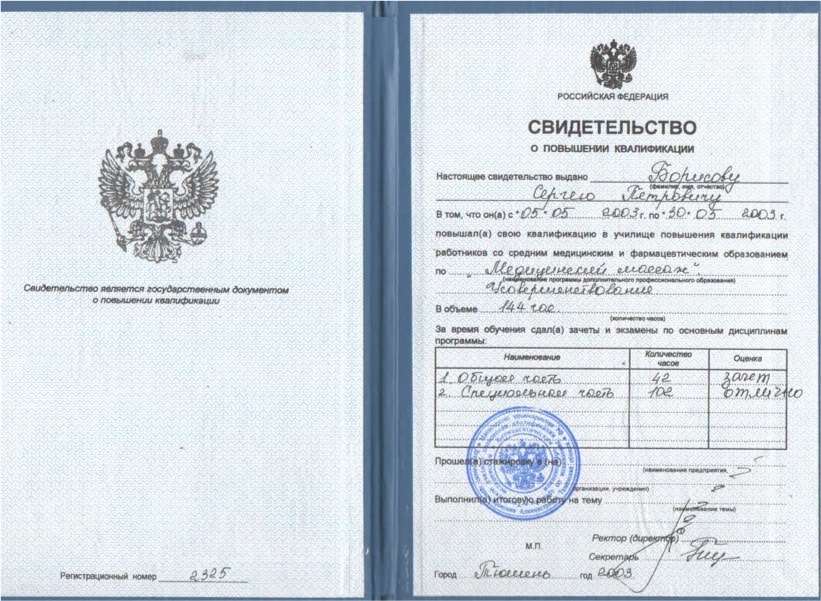 Свидетельство является государственным документом
о повышении квалификации
Регистрационный номер 2325
РОССИЙСКАЯ ФЕДЕРАЦИЯ
СВИДЕТЕЛЬСТВО
О ПОВЫШЕНИИ КВАЛИФИКАЦИИ
Настоящее свидетельство выдано Борисову
(фамилия, имя, отчество)
Сергею Петровичу
В том, что он(а) с "05" 05 2003 г. по "30" 05 2003 г.
повышал(а) свою квалификацию в училище повышения квалификации
работников со средним медицинским и фармацевтическим образованием
по "Медицинский массаж".
(наименование программы дополнительного профессионального образования)
Усовершенствование
В объеме 144 час.
(количество часов)
За время обучения сдал(а) зачеты и экзамены по основным дисциплинам
программы:
Наименование Количество часов Оценка
1. Общая часть 42 зачет
2. Специальная часть 102 отлично
Прошел(а) стажировку в (на)
(наименование предприятия,
организации, учреждения)
Выполнил(а) итоговую работу на тему
(наименование темы)
Ректор (директор)
М.П.
Секретарь
Город Тюмень год 2003